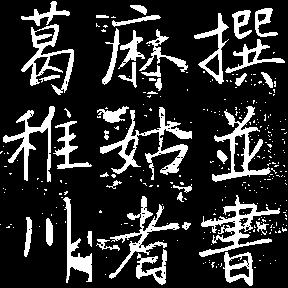 撰並書
麻姑者
葛稚川